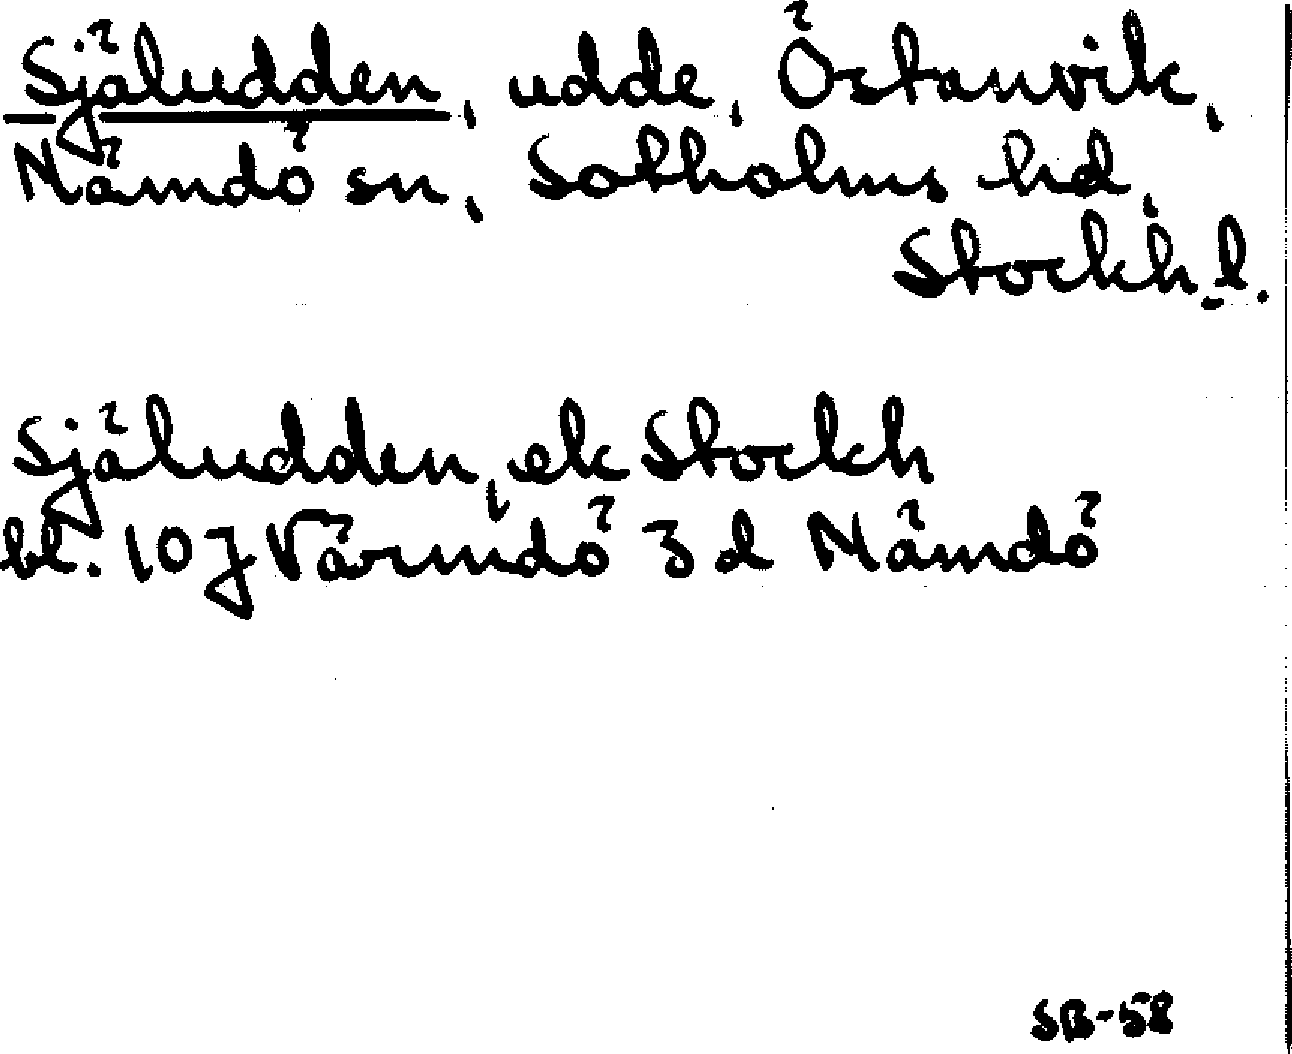 Själudden, udde, Östanvik,
Nämdö sn, Sotholms hd,
Stockh. l.
Själudden, ek Stockh
bl. 10J Värmdö 3d Nämdö
SB-58